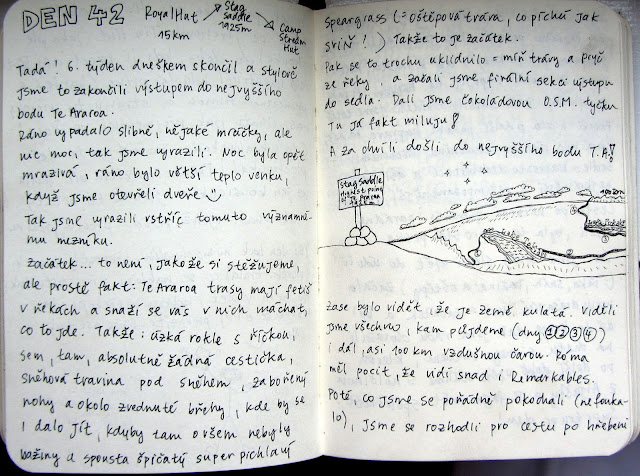 DEN 42
Royal Hut
15km
Stag
Saddle
1925m
Camp
Stream
Hut
Tadá! 6. týden dneškem skončil a stylově
jsme to zakončili výstupem do nejvyššího
bodu Te Araroa.
Ráno vypadalo slibně, nějaké mráčky, ale
nic moc, tak jsme vyrazili. Noc byla opět
mrazivá, ráno bylo větší teplo venku,
když jsme otevřeli dveře
Tak jsme vyrazili vstříc tomuto význam-
mu mezníku.
Začátek... to není, jako že si stěžujeme,
ale prostě fakt: Te Araroa trasy mají fetiš
v řekách a snaží se vás v nich máchat,
co to jde. Takže: úzká rokle s říčkou,
sem, tam, absolutně žádná cestička,
sněhová travina pod sněhem, zabořený
nohy a okolo zvednuté břehy, kde by se
i dalo jít, kdyby tam ovšem nebyly
bažiny a spousta špičatý super pichlavý
Speargrass (= oštěpová tráva, co píchá jak
sviň!) Takže to je začátek.
Pak se to trochu uklidnilo = míň trávy a pryč
ze řeky, a začali jsme finální sekci výstupu
do sedla. Dali jsme čokoládovou O.S.M. tyčku
Tu já fakt miluju!
A za chvíli došli do nejvyššího bodu T.A.!
Stag Saddle
highest point
of Te Araroa
1925m
Zase bylo vidět, že je země kulatá. Viděli
jsme všechno, kam půjdeme (dny 1 2 3 4)
i dál, asi 100 km vzdušnou čarou. Roma
měl pocit, že vidí snad i Remarkables.
Poté, co jsme se pořádně pokochali (nefouka-
lo), jsme se rozhodli pro cestu po hřebeni